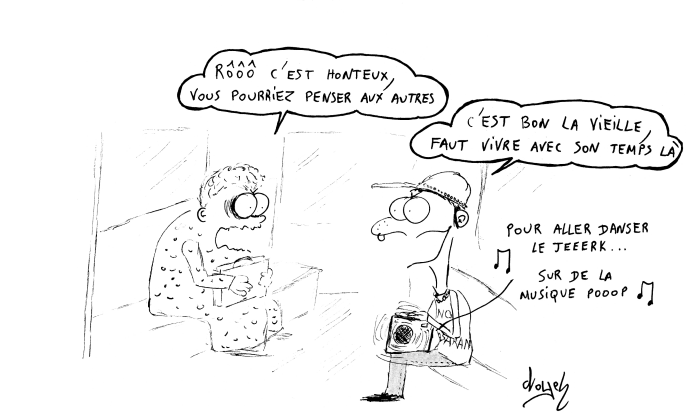 RÔÔÔ C'EST HONTEUX,
VOUS POURRIEZ PENSER AUX AUTRES
C'EST BON LA VIEILLE,
FAUT VIVRE AVEC SON TEMPS LÀ
POUR ALLER DANSER
LE JEEERK...
SUR DE LA
MUSIQUE POOOP
NO